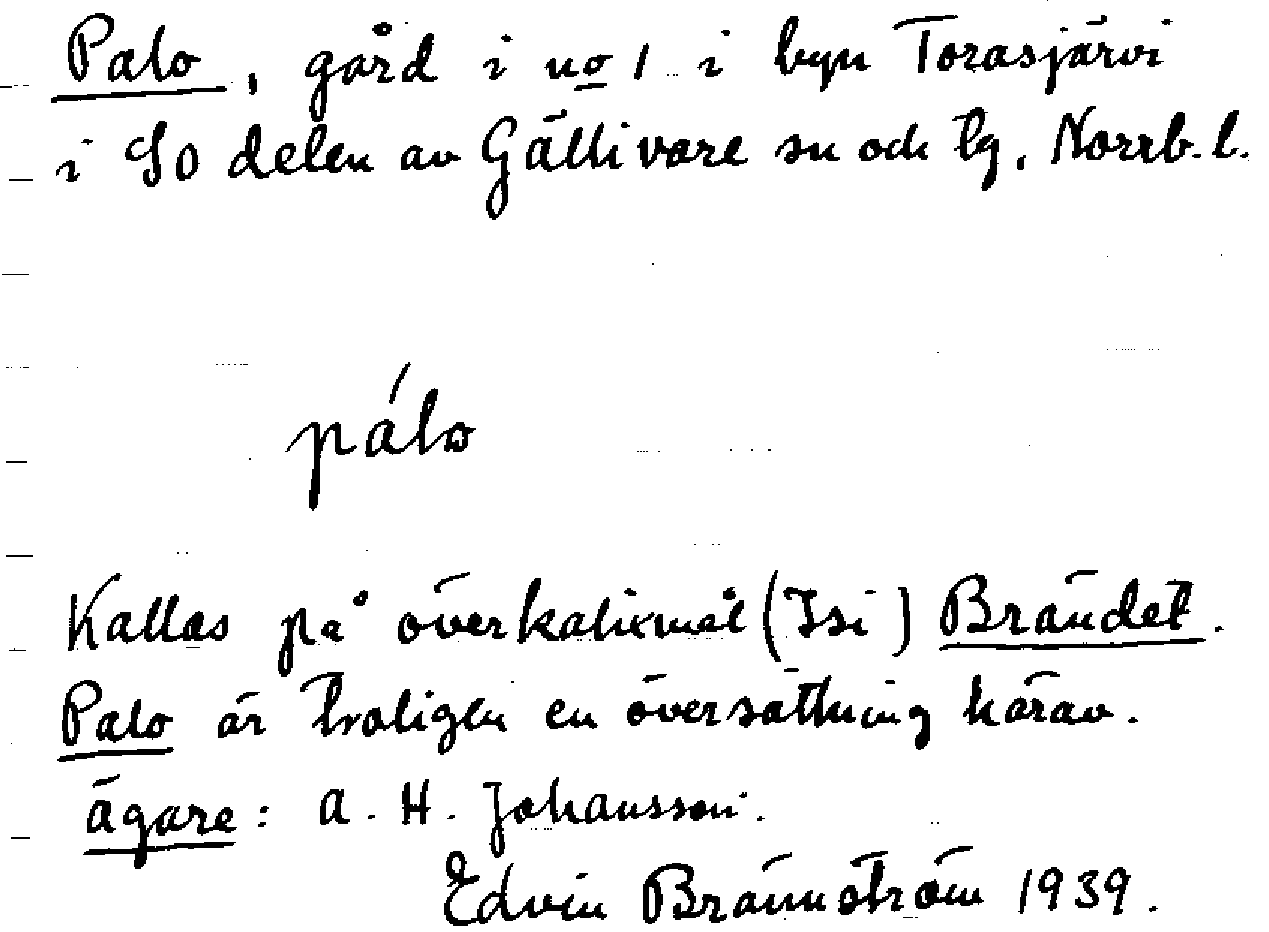 Palo, gård i no 1 i byn Torasjärvi
i SO delen av Gällivare sn och tg, Norrb. l.
pálo
Kallas på överkalixmål (Isi) Brändet.
Palo är troligen en översättning härav.
ägare: A. H. Johansson.
Edvin Brännström 1939.